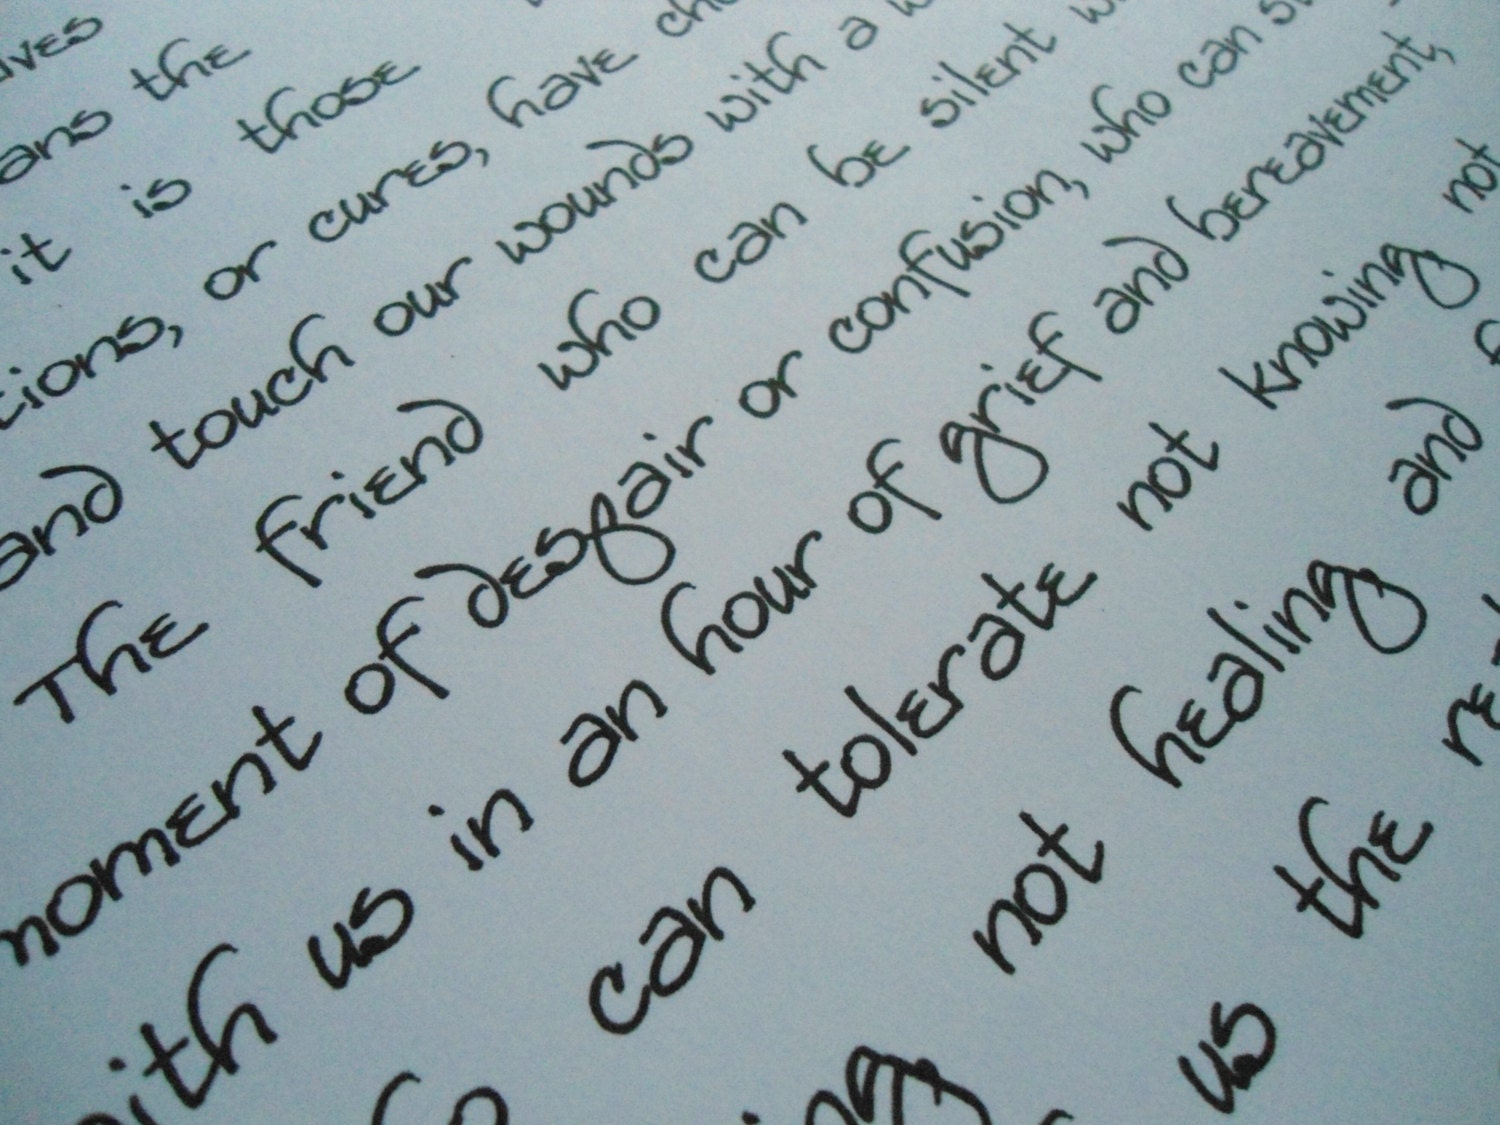 the
it is those
or cures, have
and touch our wounds with a
The friend who can be silent
moment of despair or confusion, who can
with us in an hour of grief and bereavement,
can tolerate not knowing not
not healing and
us the